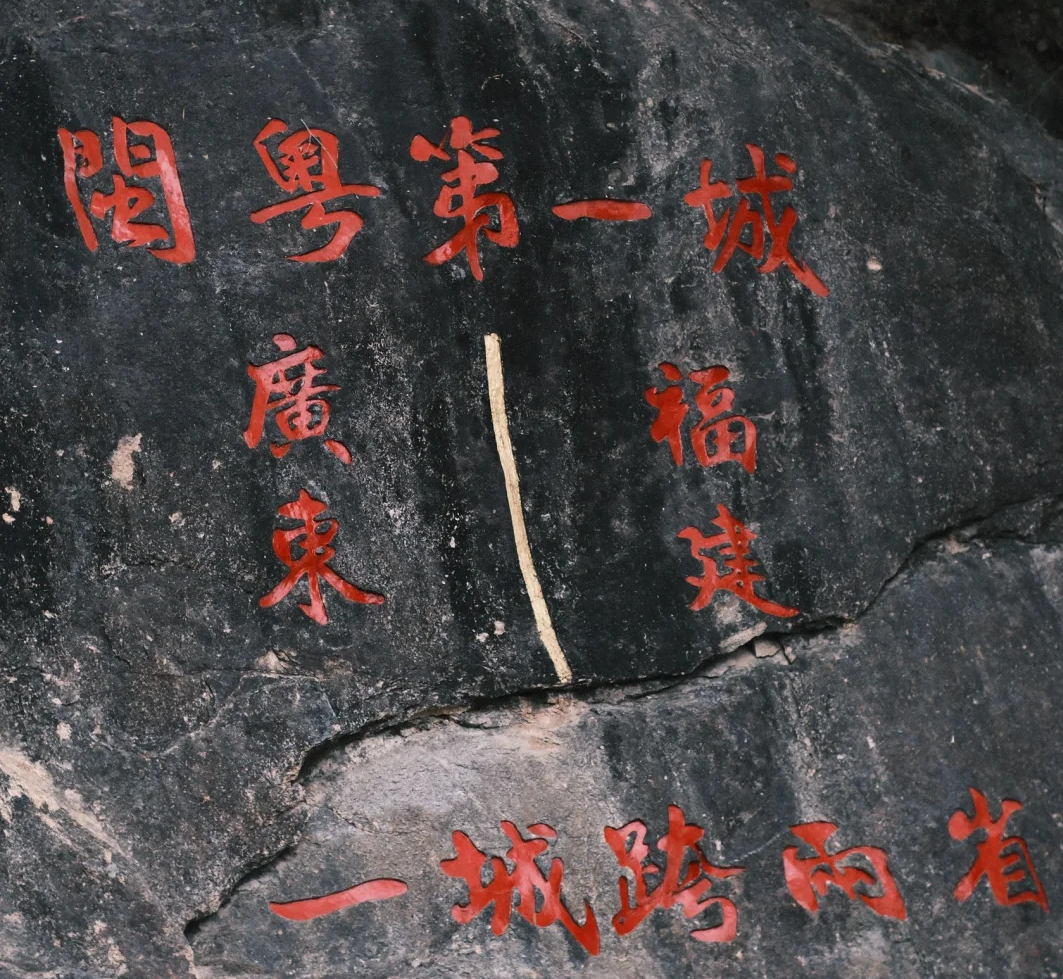 閩粤第一城
廣東
福建
一城跨兩省